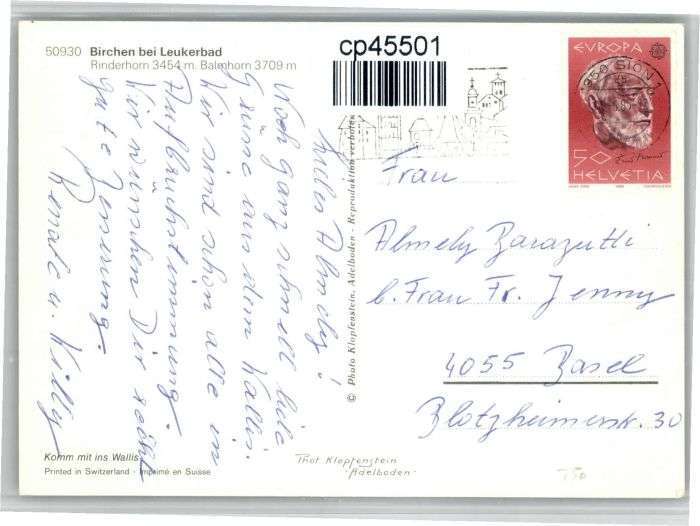 50930 Birchen bei Leukerbad
Rinderhorn 3454 m. Balmhorn 3709 m
cp45501
EVROPA
SION 1
50
HELVETIA
Noch ganz schnell liebe
Grüsse aus dem Wallis.
Wir sind schon alle in
Aufbruchstimmung.
Wir wünschen Dir recht
gute Besserung.
Renate u. Willy
© Photo Klopfenstein, Adelboden - Reproduktion verboten
Frau
Almely Barazutti
b. Frau Fr. Jenny
4055 Basel
Blotzheimerstr. 30
Komm mit ins Wallis
Printed in Switzerland - Imprimé en Suisse
Phot Klopfenstein
Adelboden